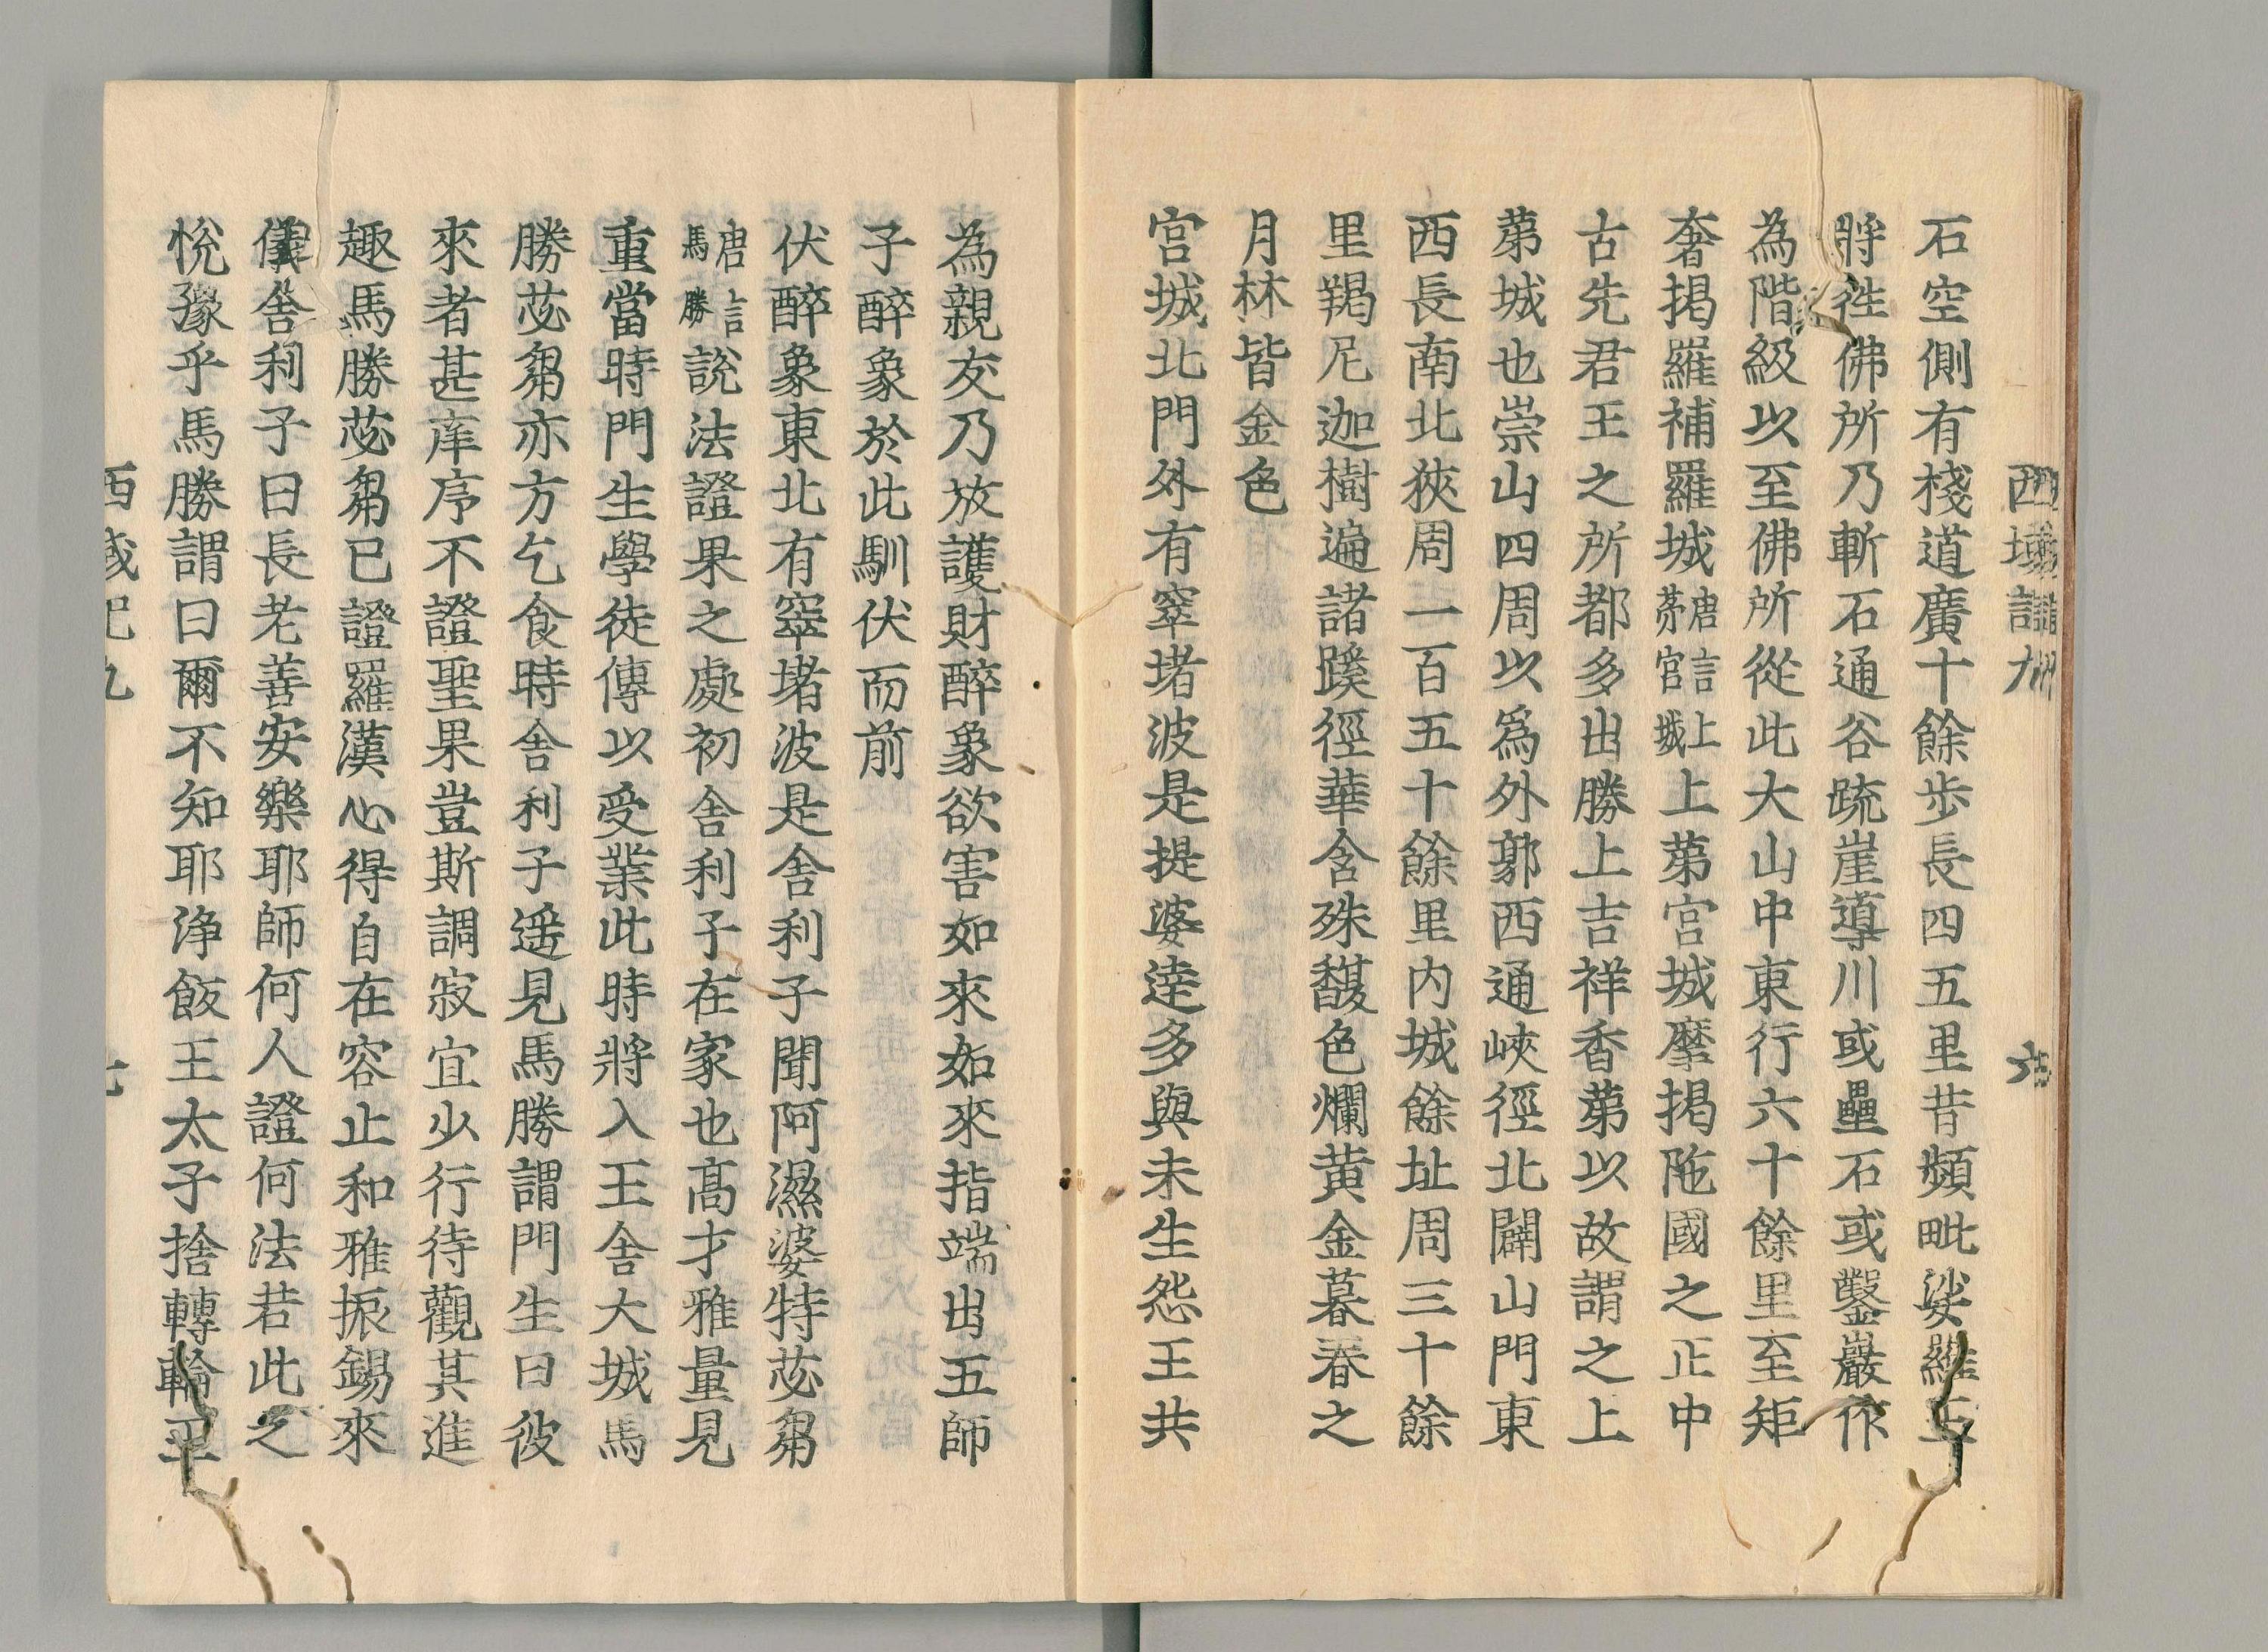 西域記九 六
石空側有棧道廣十餘步長四五里昔頻毗娑羅王
將往佛所乃斬石通谷䟽崖導川或壘石或鑿巖作
為階級以至佛所從此大山中東行六十餘里至矩
奢揭羅補羅城唐言上茅宮城上茅宮城摩揭陁國之正中
古先君王之所都多出勝上吉祥香茅以故謂之上
茅城也崇山四周以爲外郭西通峽徑北闢山門東
西長南北狹周一百五十餘里内城餘址周三十餘
里羯尼迦樹遍諸蹊徑華含殊馥色爛黄金暮春之
月林皆金色
宮城北門外有窣堵波是提婆逹多與未生怨王共
為親友乃放護財醉象欲害如來如來指端出五師
子醉象於此馴伏而前
伏醉象東北有窣堵波是舍利子聞阿濕婆特苾芻
唐言馬勝說法證果之處初舍利子在家也髙才雅量見
重當時門生學徒傳以受業此時將入王舍大城馬
勝苾芻亦方乞食時舍利子遥見馬勝謂門生曰彼
來者甚庠序不證聖果豈斯調寂宜少行待觀其進
趣馬勝苾芻已證羅漢心得自在容止和雅振錫來
儀舍利子曰長老善安樂耶師何人證何法若此之
悅豫乎馬勝謂曰爾不知耶淨飯王太子捨轉輪王
西域記九 七